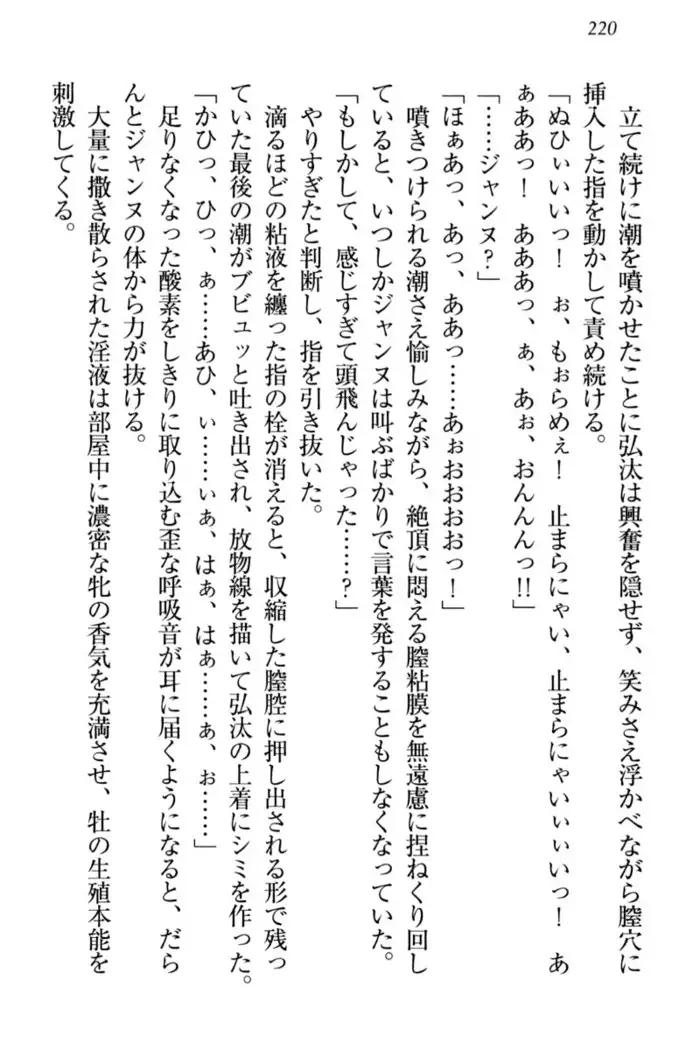 220
立て続けに潮を噴かせたことに弘汰は興奮を隠せず、笑みさえ浮かべながら膣穴に
挿入した指を動かして責め続ける。
「ぬひぃいいっ！　ぉ、もぉらめぇ！　止まらにゃい、止まらにゃいぃぃいっ！　あ
ぁああっ！　あああっ、ぁ、あぉ、おんんんっ!!」
「……ジャンヌ？」
「ほぁあっ、あっ、ああっ……あぉおおおおっ！」
噴きつけられる潮さえ愉しみながら、絶頂に悶える膣粘膜を無遠慮に捏ねくり回し
ていると、いつしかジャンヌは叫ぶばかりで言葉を発することもしなくなっていた。
「もしかして、感じすぎて頭飛んじゃった……？」
やりすぎたと判断し、指を引き抜いた。
滴るほどの粘液を纏った指の栓が消えると、収縮した膣腔に押し出される形で残っ
ていた最後の潮がブビュッと吐き出され、放物線を描いて弘汰の上着にシミを作った。
「かひっ、ひっ、ぁ……あひ、ぃ……ぃぁ、はぁ、はぁ……ぁ、ぉ……」
足りなくなった酸素をしきりに取り込む歪な呼吸音が耳に届くようになると、だら
んとジャンヌの体から力が抜ける。
大量に撒き散らされた淫液は部屋中に濃密な牝の香気を充満させ、牡の生殖本能を
刺激してくる。